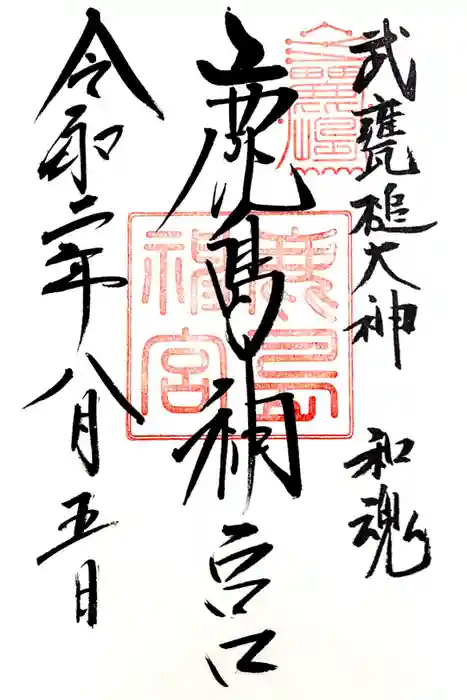 武甕槌大神 和魂
鹿島神宮
令和二年八月五日
鹿島
神宮